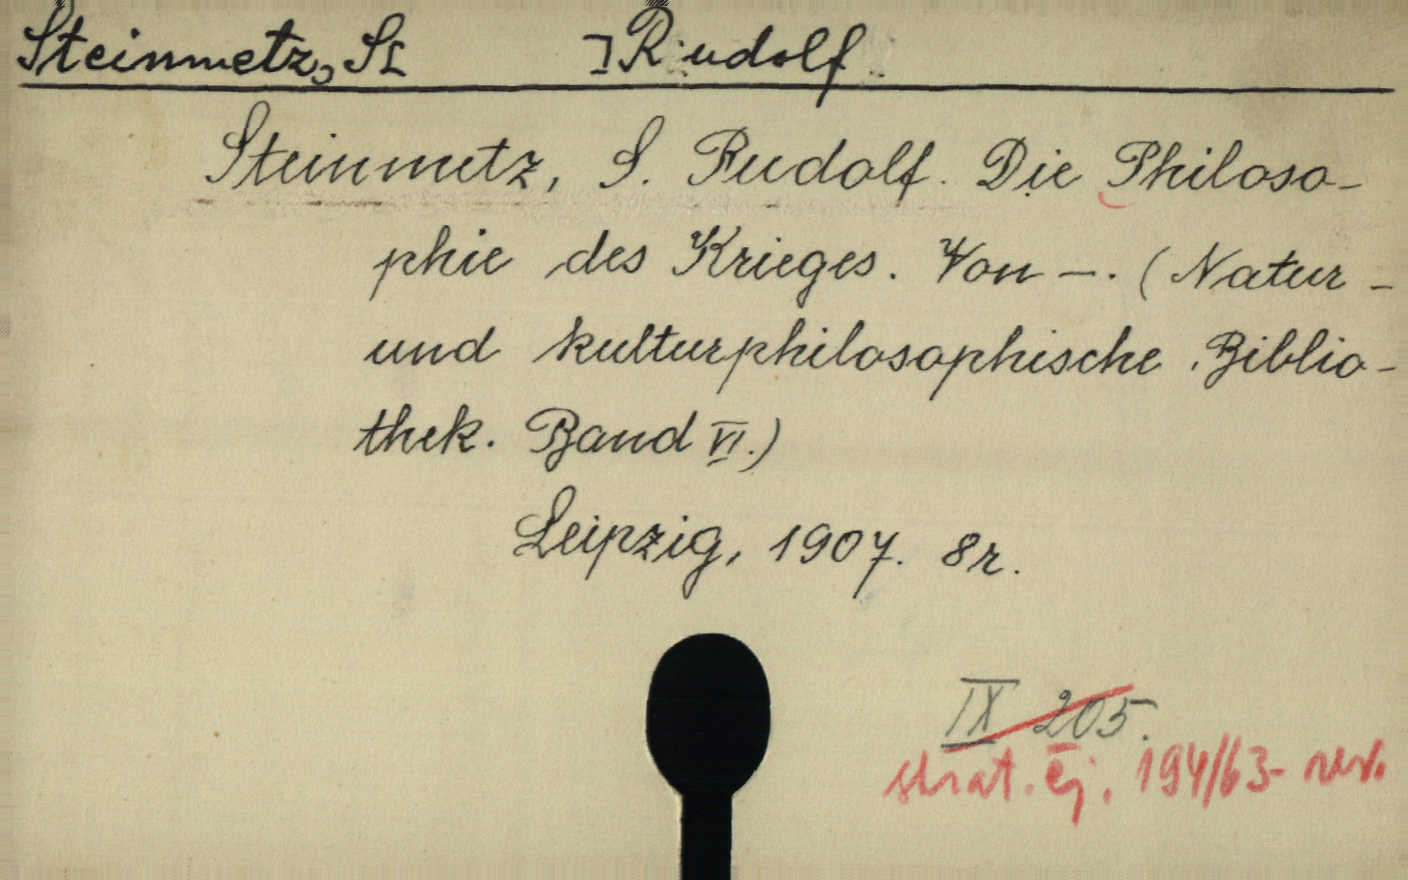 Steinmetz, S[ ] Rudolf
Steinmetz, S. Rudolf. Die Philoso-
phie des Krieges. Von —. (Natur-
und kulturphilosophische Biblio-
thek. Band VI.)
Leipzig, 1907. 8r.
IX 205.
strat. ej. 194/63- rev.